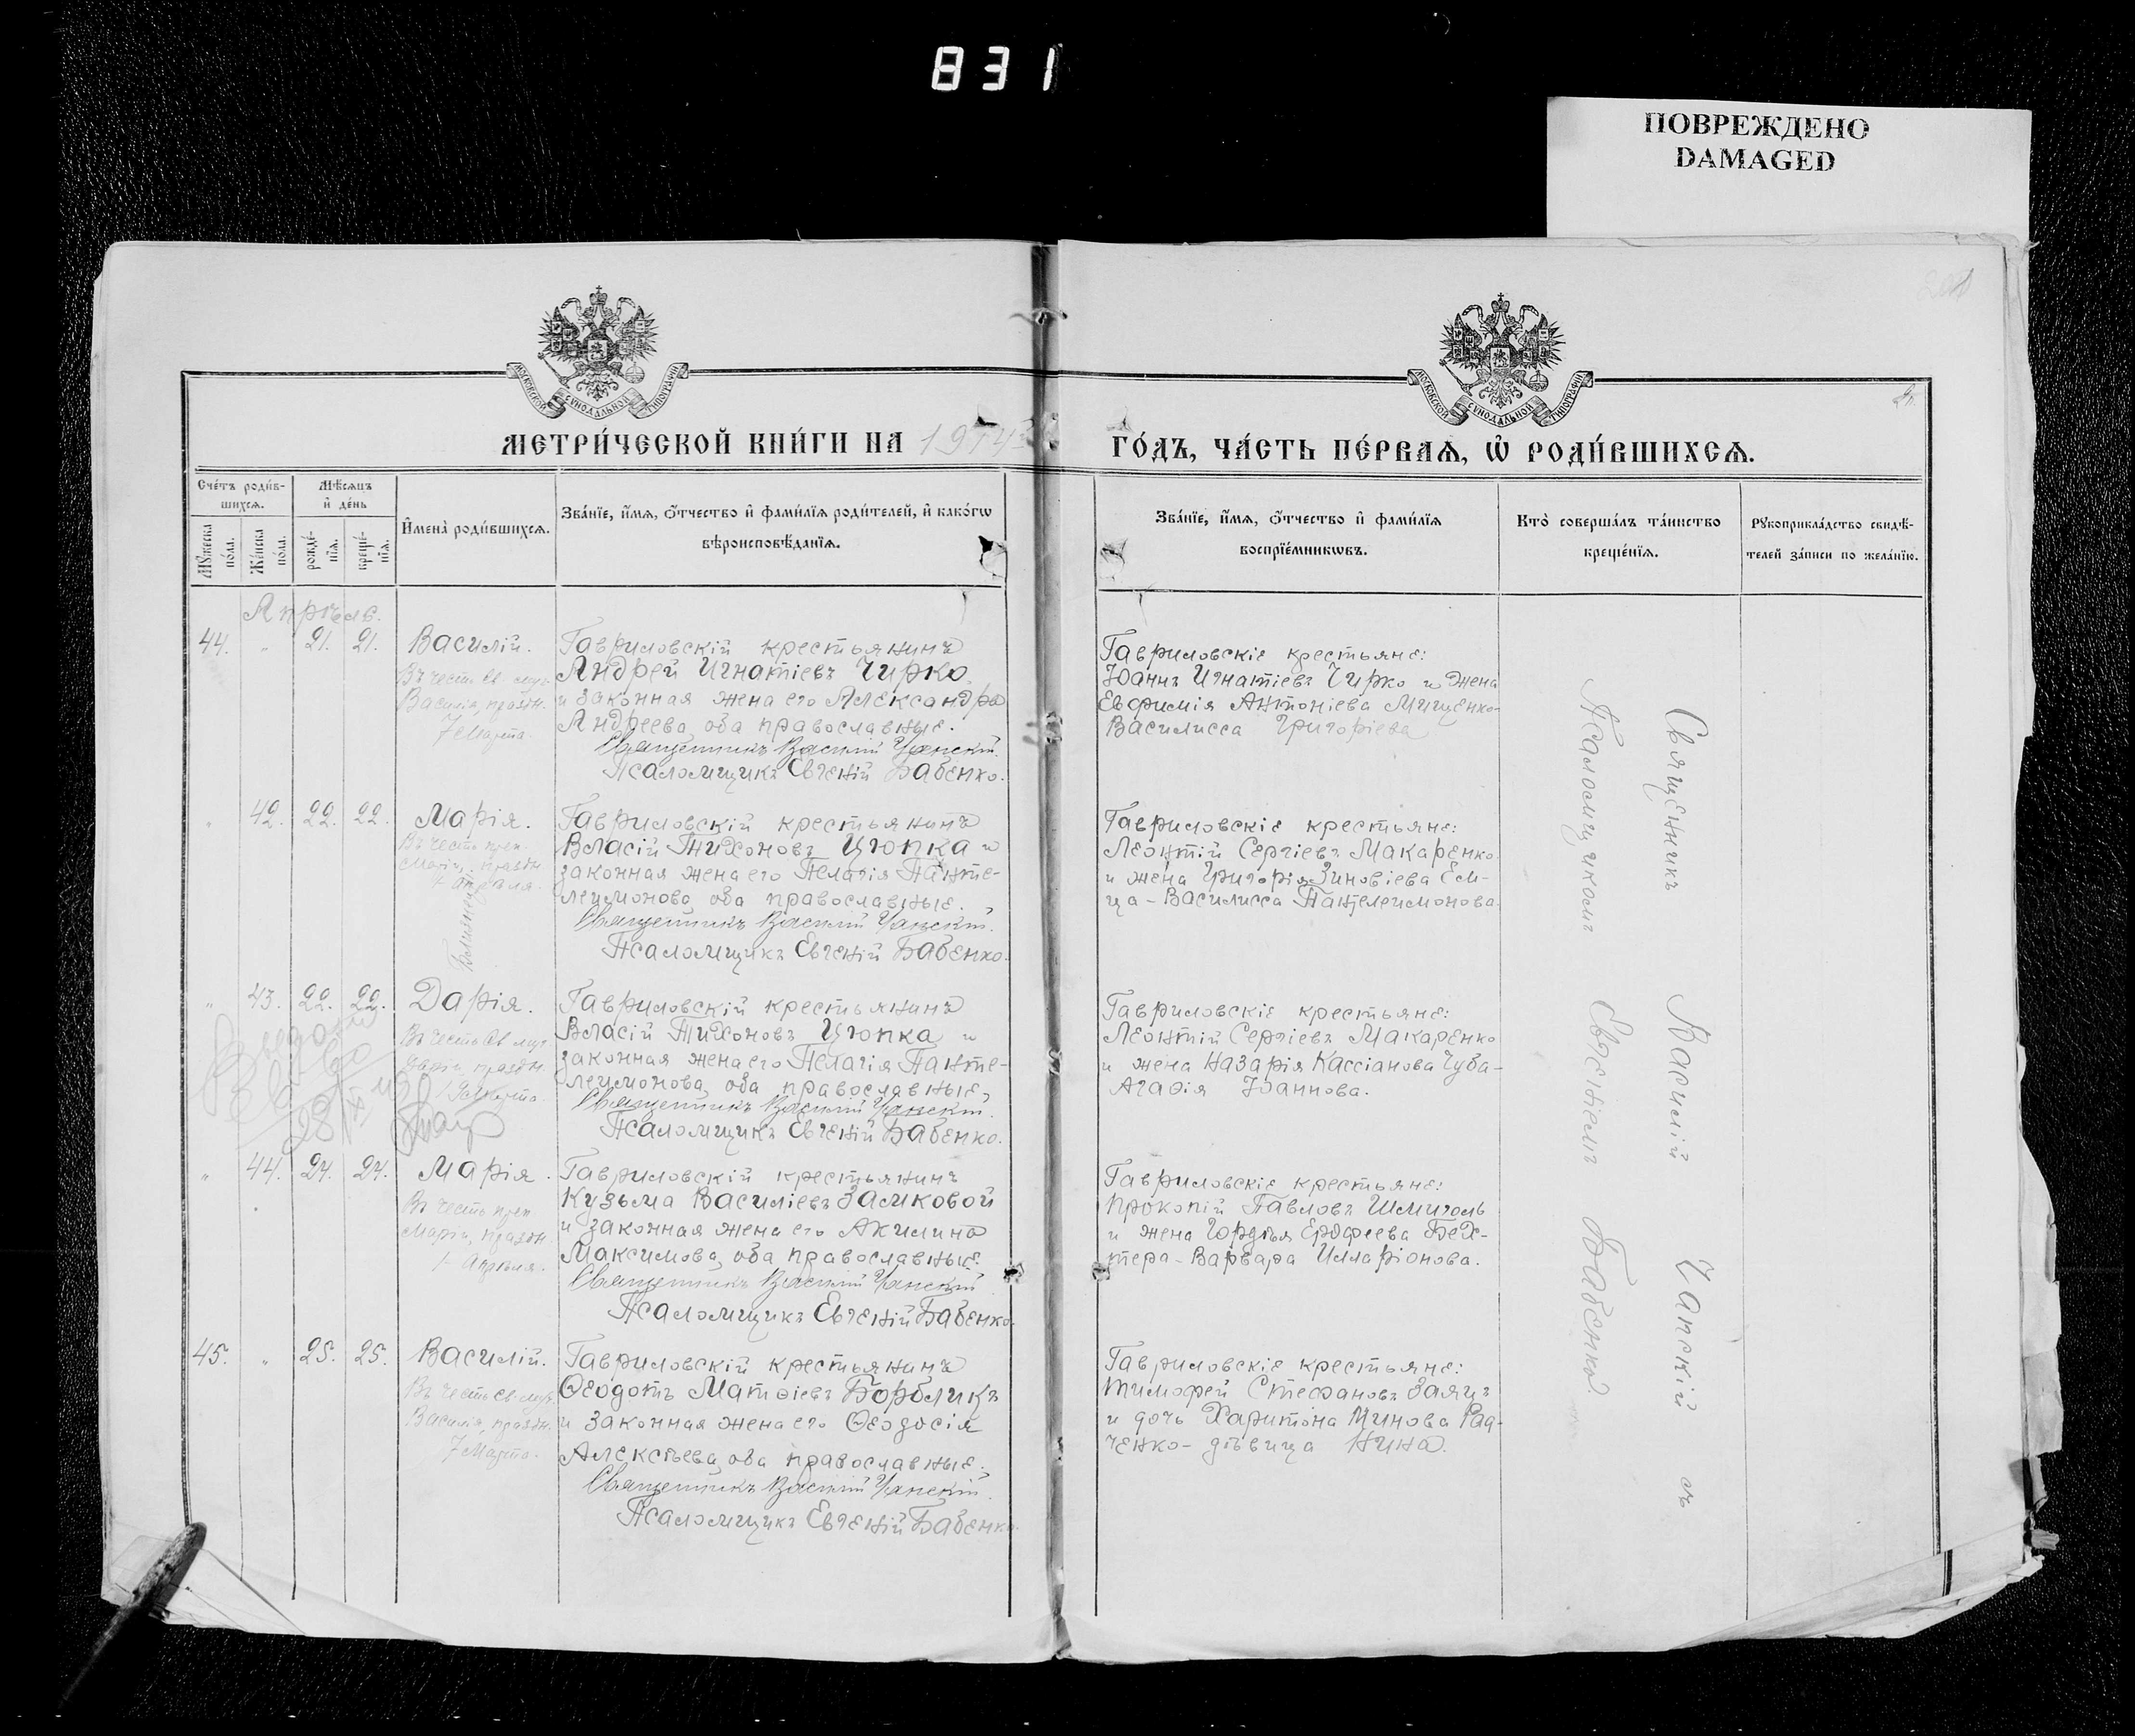 831
ПОВРЕЖДЕНО
DAMAGED
МОСКОВСКОЙ СѴНОДАЛЬНОЙ ТИПОГРАФІИ
МОСКОВСКОЙ СѴНОДАЛЬНОЙ ТИПОГРАФІИ
МЕТРИ́ЧЕСКОЙ КНИ́ГИ НА 1914й
ГО́ДЪ, ЧА́СТЬ ПЕ́РВАѦ, Ѡ҆ РОДИ́ВШИХСѦ.
Сче́тъ роди́в-
шихсѧ.
Мꙋ́жеска по́ла.
Же́нска по́ла.
Мѣ́сѧцъ
и҆ де́нь
рожде́-
нїѧ.
креще́-
нїѧ.
И҆мена̀ роди́вшихсѧ.
Зва́нїе, и҆́мѧ, ѻ҆́тчество и҆ фами́лїѧ роди́телей, и҆ како́гѡ
вѣроисповѣ́данїѧ.
Зва́нїе, и҆́мѧ, ѻ҆́тчество и҆ фами́лїѧ
воспрїе́мникѡвъ.
Кто̀ соверша́лъ та́инство
креще́нїѧ.
Рꙋкоприкла́дство свидѣ́-
телей за́писи по жела́нїю.
Апрѣль.
44. " 21. 21. Василій.
Въ честь св. муч.
Василія, празн.
7 Марта.
Гавриловскій крестьянинъ
Андрей Игнатіевъ Чирко
и законная жена его Александра
Андреева, оба православные.
Священникъ Василій Чапскій.
Псаломщикъ Евгеній Бабенко.
Гавриловскіе крестьяне:
Іоаннъ Игнатіевъ Чирко и жена
Евфимія Антоніева Мищенко-
Василисса Григоріева
" 42. 22. 22. Марія.
Въ честь преп.
Маріи, празн.
1 Апрѣля.
Близнецы
Гавриловскій крестьянинъ
Власій Тихоновъ Цюпка и
законная жена его Пелагія Панте-
леимонова, оба православные.
Священникъ Василій Чапскій.
Псаломщикъ Евгеній Бабенко.
Гавриловскіе крестьяне:
Леонтій Сергіевъ Макаренко
и жена Григорія Зиновіева Ем-
ца - Василисса Пантелеимонова.
" 43. 22. 22. Дарія.
Въ честь св. муч.
Даріи, празн.
19 Марта.
28/IX
Гавриловскій крестьянинъ
Власій Тихоновъ Цюпка и
законная жена его Пелагія Панте-
леимонова, оба православные.
Священникъ Василій Чапскій.
Псаломщикъ Евгеній Бабенко.
Гавриловскіе крестьяне:
Леонтій Сергіевъ Макаренко
и жена Назарія Кассіанова Чуба-
Агаѳія Іоаннова.
" 44. 24. 24. Марія.
Въ честь преп.
Маріи, празн.
1 Апрѣля.
Гавриловскій крестьянинъ
Кузьма Василіевъ Замковой
и законная жена его Акилина
Максимова, оба православные.
Священникъ Василій Чапскій
Псаломщикъ Евгеній Бабенко.
Гавриловскіе крестьяне:
Прокопій Павловъ Шмиголь
и жена Гордѣя Ерофеева Бех-
тера - Варвара Илларіонова.
45. " 25. 25. Василій.
Въ честь св. муч.
Василія, празн.
7 Марта.
Гавриловскій крестьянинъ
Ѳеодотъ Матѳіевъ Борбликъ
и законная жена его Ѳеодосія
Алексѣева, оба православные.
Священникъ Василій Чапскій.
Псаломщикъ Евгеній Бабенко
Гавриловскіе крестьяне:
Тимофей Стефановъ Заяцъ
и дочь Харитона Минова Рад-
ченко - дѣвица Нина.
Священникъ Василій Чапскій съ
Псаломщикомъ Евгеніемъ Бабенко.